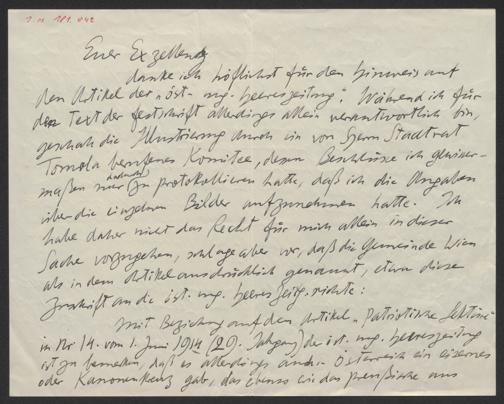 Euer Exzellenz
danke ich höflichst für den Hinweis auf
den Artikel der „öst.-ung. Heereszeitung". Während ich für
den Text der Festschrift allerdings allein verantwortlich bin,
geschah die Illustrierung durch ein von Herrn Stadtrat
Tomola berufenes Komitee, dessen Beschlüsse ich gewisser-
maßen nur zu protokollieren hatte, daß ich die Angaben
über die einzelnen Bilder aufzunehmen hatte. Ich
habe daher nicht das Recht für mich allein in dieser
Sache vorzugehen, schlage aber vor, daß die Gemeinde Wien
als in dem Artikel ausdrücklich genannt, etwa diese
Zuschrift an die öst. ung. Heeresztg. richte:
Mit Beziehung auf den Artikel „Patriotische
in Nr 14. vom 1. Juni 1914 (29. Jahrgang) der öst. ung. Heereszeitung
ist zu bemerken, daß es allerdings auch in Österreich ein eisernes
oder Kanonenkreuz gab, das ebenso wie das Preußische aus